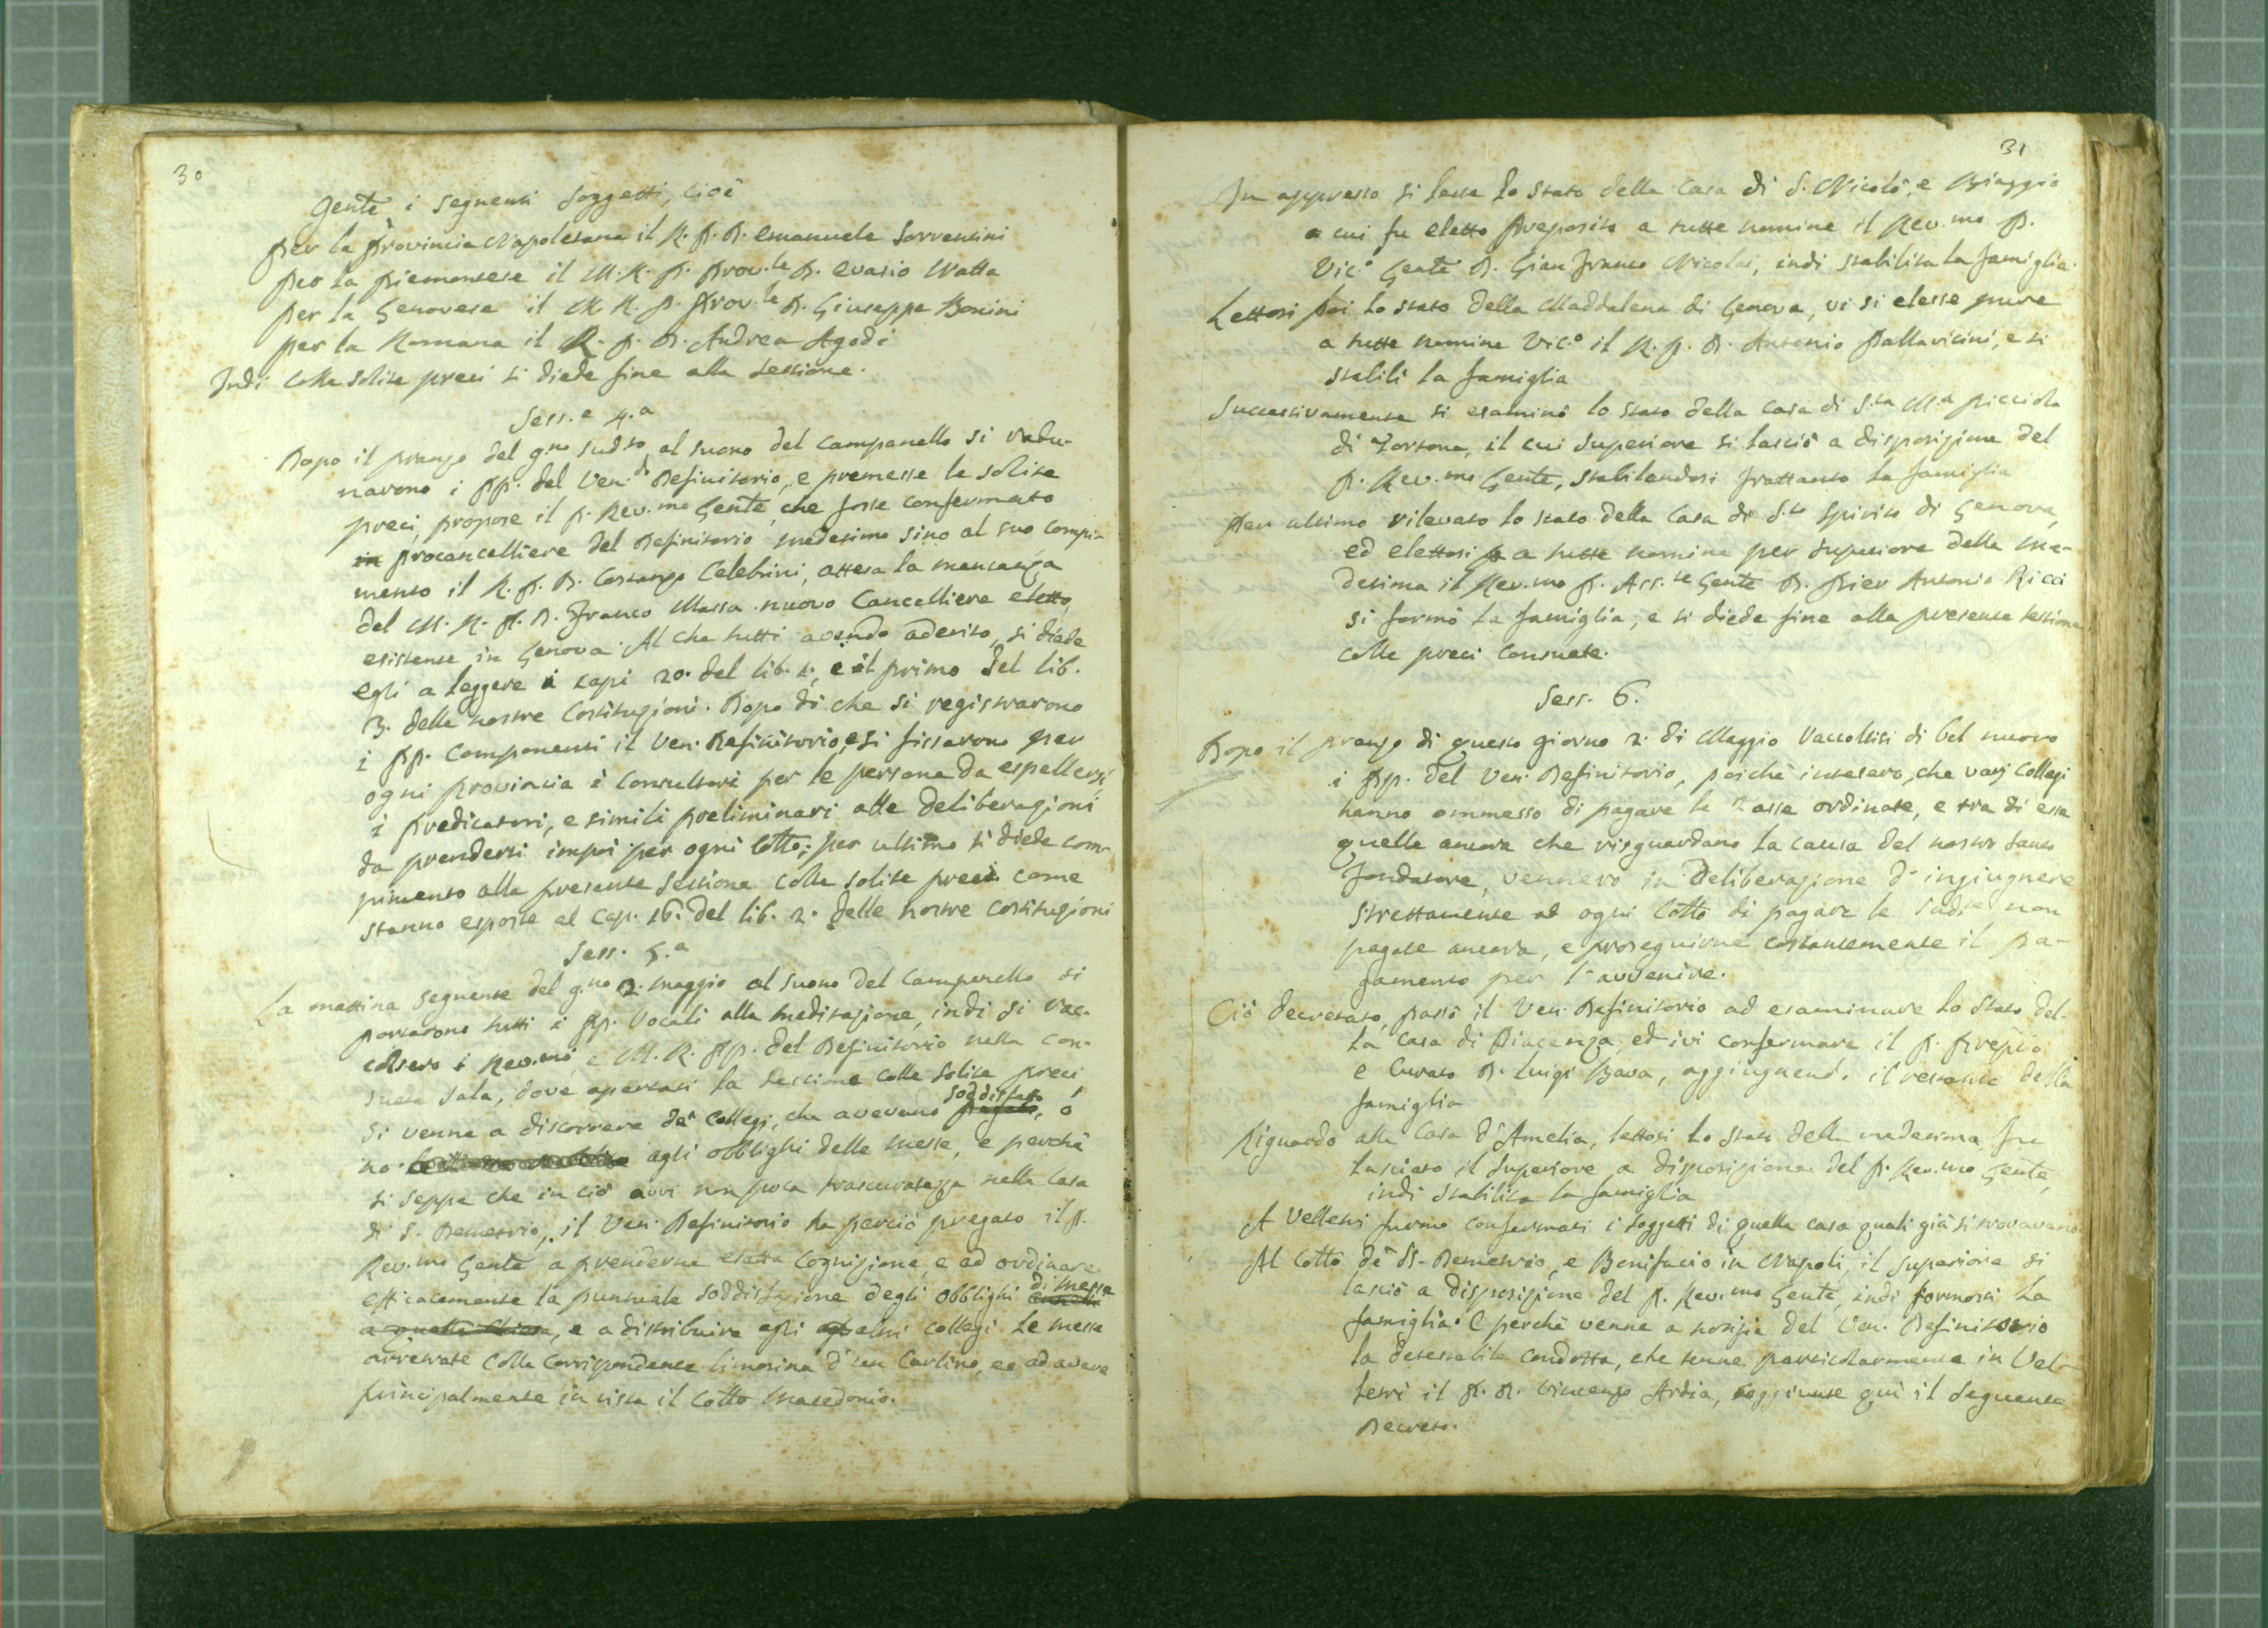 30
Gen̄te i seguenti Soggetti, cioè
per la Provincia Napoletana il R. P. D. Emanuele Sorrentini
per la Piemontese il M. R. P. Prov.le D. Evasio Natta
per la Genovese il M. R. P. Prov.le D. Giuseppe Bonini
per la Romana il R. P. D. Andrea Agodi
Indi colle solite preci si diede fine alla sessione.
Sess.e 4.a
Dopo il pranzo del g.no sud.to al suono del campanello si radu-
narono i PP. del Ven.do Definitorio, e premesse le solite
preci, propose il P. Rev.mo Gen̄te, che fosse confermato
in procancelliere del Definitorio medesimo sino al suo compi-
mento il R. P. D. Costanzo Celebrini, attesa la mancanza
del M. R. P. D. Franco Massa nuovo Cancelliere eletto,
esistente in Genova. Al che tutti avendo aderito, si diede
egli a leggere i capi 20. del lib. 1, e il primo del lib.
3. delle nostre Costituzioni. Dopo di che si registrarono
i PP. componenti il Ven. Definitorio, e si fissarono per
ogni Provincia i Consultori per le persone da espellersi,
i predicatori, e simili preliminari alle deliberazioni
da prendersi impoi per ogni Cotto; per ultimo si diede com-
pimento alla presente Sessione colle solite preci come
stanno esposte al cap. 16. del lib. 2. delle nostre Costituzioni
Sess. 5.a
La mattina seguente del g.no 2. maggio al suono del Campanello si
portarono tutti i PP. Vocali alla meditazione, indi si rac-
colsero i Rev.mi, e M. R. PP. del Definitorio nella con-
sueta sala, dove apertasi la sessione colle solite preci
si venne a discorrere de' collegi, che avevano pagato, soddisfatto ò
no agli obblighi delle messe, e perchè
si seppe che in ciò avvi non poca trascuratezza nella Casa
di S. Demetrio, il Ven. Definitorio ha perciò pregato il P.
Rev.mo Gen̄te a prenderne esatta cognizione, e ad ordinare
efficacemente la puntuale soddisfazione degli obblighi di messe
, e a distribuire agli altri collegi le messe
arretrate colla corrispondente limosina d'un Carlino, ed ad avere
principalmente in vista il Cotto Macedonio.
31
In appresso si lesse lo stato della Casa di S. Nicolò, e Biaggio
a cui fu eletto Preposito a tutte nomine il Rev.mo P.
Vic.o Gen̄te D. Gian Franco Nicolai, indi stabilita la famiglia.
Lettosi poi lo stato della Maddalena di Genova, vi si elesse pure
a tutte nomine Vic.o il R. P. D. Antonio Pallavicini, e si
stabilì la famiglia
Successivamente si esaminò lo stato della casa di S.ta M.a Picciola
di Tortona, il cui Superiore si lasciò a disposizione del
P. Rev.mo Gen̄te, stabilendosi frattanto la famiglia
Per ultimo rilevato lo stato della Casa di S.to Spirito di Genova,
ed elettosi a tutte nomine per superiore della me-
desima il Rev.mo P. Ass.te Gen̄te D. Pier Antonio Ricci
si formò la famiglia, e si diede fine alla presente sessione
colle preci consuete.
Sess. 6.
Dopo il pranzo di questo giorno 2. di Maggio raccoltisi di bel nuovo
i PP. del Ven. Definitorio, poichè intesero, che varj Collegi
hanno ommesso di pagare le Tasse ordinate, e tra di esse
quelle ancora che risguardano la causa del nostro Santo
Fondatore, vennero in deliberazione d'ingiugnere
strettamente ad ogni Cotto di pagare le sud.te non
pagate ancora, e proseguirne costantemente il pa-
gamento per l'avvenire.
Ciò decretato, passò il Ven. Definitorio ad esaminare lo stato del-
la Casa di Piacenza, ed ivi confermare il P. Prep.o
e Curato D. Luigi Bava, aggiugnendo il restante della
famiglia
Riguardo alla Casa d'Amelia, lettosi lo stato della medesima, fu
lasciato il Superiore a disposizione del P. Rev.mo Gen̄te,
indi stabilita la famiglia
A Velletri furono confermati i soggetti di quella casa quali già si trovavano
Al Cotto de' SS. Demetrio, e Bonifacio in Napoli, il superiore si
lasciò a disposizione del P. Rev.mo Gen̄te, indi formossi la
famiglia. E perchè venne a notizia del Ven. Definitorio
la detestabile condotta, che tenne particolarmente in Vel-
letri il P. D. Vincenzo Ardia, soggiunse quì il seguente
Decreto.